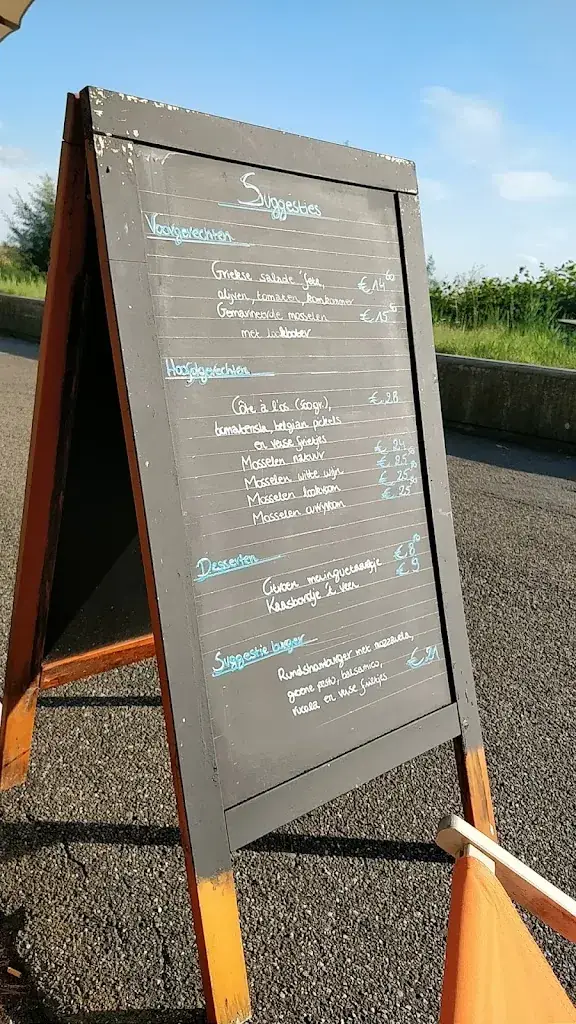 Suggesties
Voorgerechten
Griekse salade 'feta, €14⁶⁰
olijven, tomaten, komkommer
Gemarineerde mosselen €15⁵⁰
met lookboter
Hoofdgerechten
Côte à l'os (500gr.), €28
tomatensla, belgian pickels
en verse frietjes
Mosselen natuur €24
Mosselen witte wijn €25⁵⁰
Mosselen lookroom €25⁵⁰
Mosselen curryroom €25
Desserten
Citroen meringuetaartje €8⁵⁰
Kaasbordje 't veer €9
Suggestie burger
Rundshamburger met mozzarella, €21
groene pesto, balsamico,
rucola en verse frietjes